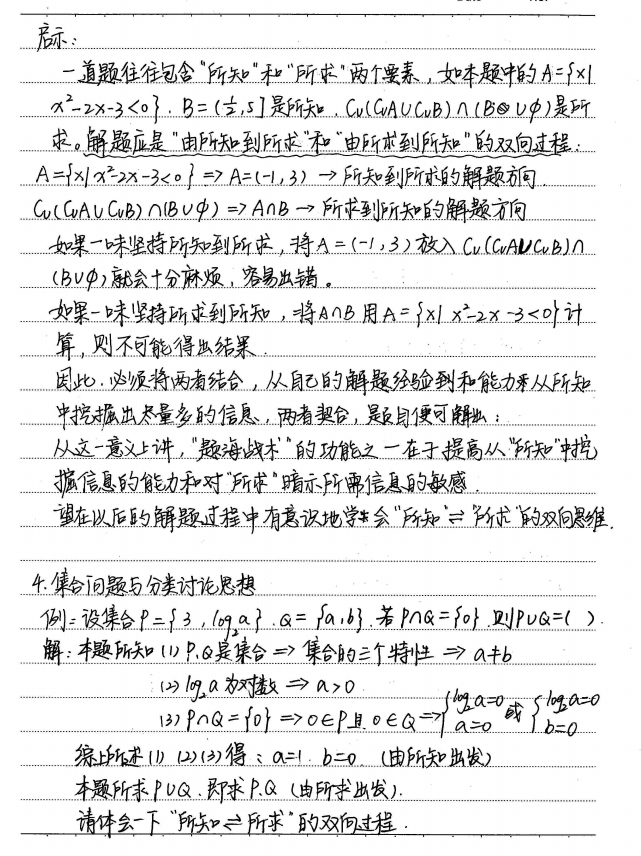 启示：
一道题往往包含“所知”和“所求”两个要素，如本题中的A={x|
x²-2x-3<0}．B=(½,5]是所知．Cu(CuA∪CuB)∩(B∪φ)是所
求。解题应是“由所知到所求”和“由所求到所知”的双向过程：
A={x|x²-2x-3<0}⇒A=(-1,3)→所知到所求的解题方向
Cu(CuA∪CuB)∩(B∪φ)⇒A∩B→所求到所知的解题方向
如果一味坚持所知到所求，将A=(-1,3)放入Cu(CuA∪CuB)∩
(B∪φ)就会十分麻烦，容易出错。
如果一味坚持所求到所知，将A∩B用A={x|x²-2x-3<0}计
算，则不可能得出结果．
因此．必须将两者结合，从自己的解题经验到和能力来从所知
中挖掘出尽量多的信息，两者契合，题目便可解出；
从这一意义上讲，“题海战术”的功能之一在于提高从“所知”中挖
掘信息的能力和对“所求”暗示所需信息的敏感．
望在以后的解题过程中有意识地学会“所知”⇌“所求”的双向思维．
4.集合问题与分类讨论思想
例：设集合P={3,log₂a}．Q={a,b}．若P∩Q={0}．则P∪Q=( )．
解：本题所知(1)P,Q是集合⇒集合的三个特性⇒a≠b
(2)log₂a为对数⇒a>0
(3)P∩Q={0}⇒0∈P且0∈Q⇒{log₂a=0 a=0 或 {log₂a=0 b=0
综上所述(1)(2)(3)得：a=1．b=0 (由所知出发)
本题所求P∪Q．即求P.Q(由所求出发)．
请体会一下“所知⇌所求”的双向过程．